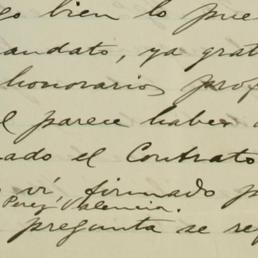 go bien lo pue
andato, ya grat
honorarios prof
l parece haber
ado el Contrato
vi firmado p
Perez Valencia.
pregunta se re